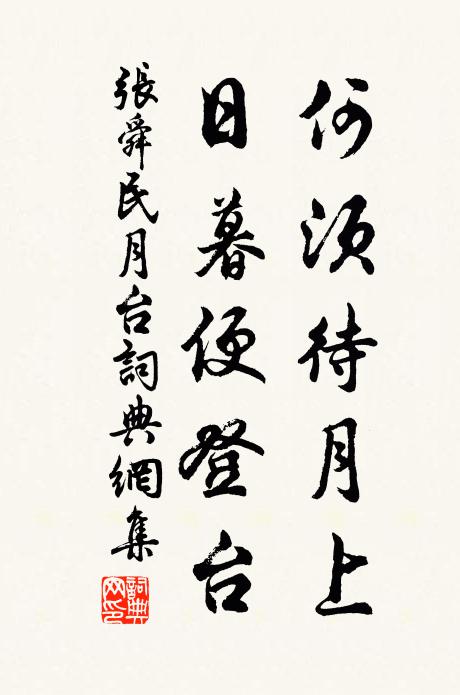 何須待月上
日暮便登台
張舜民月台詞典網集
詞典網印